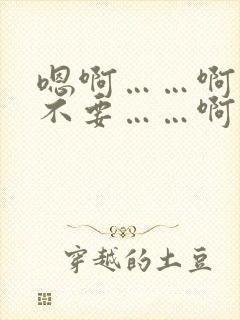 嗯啊……啊
不要……啊
穿越的土豆